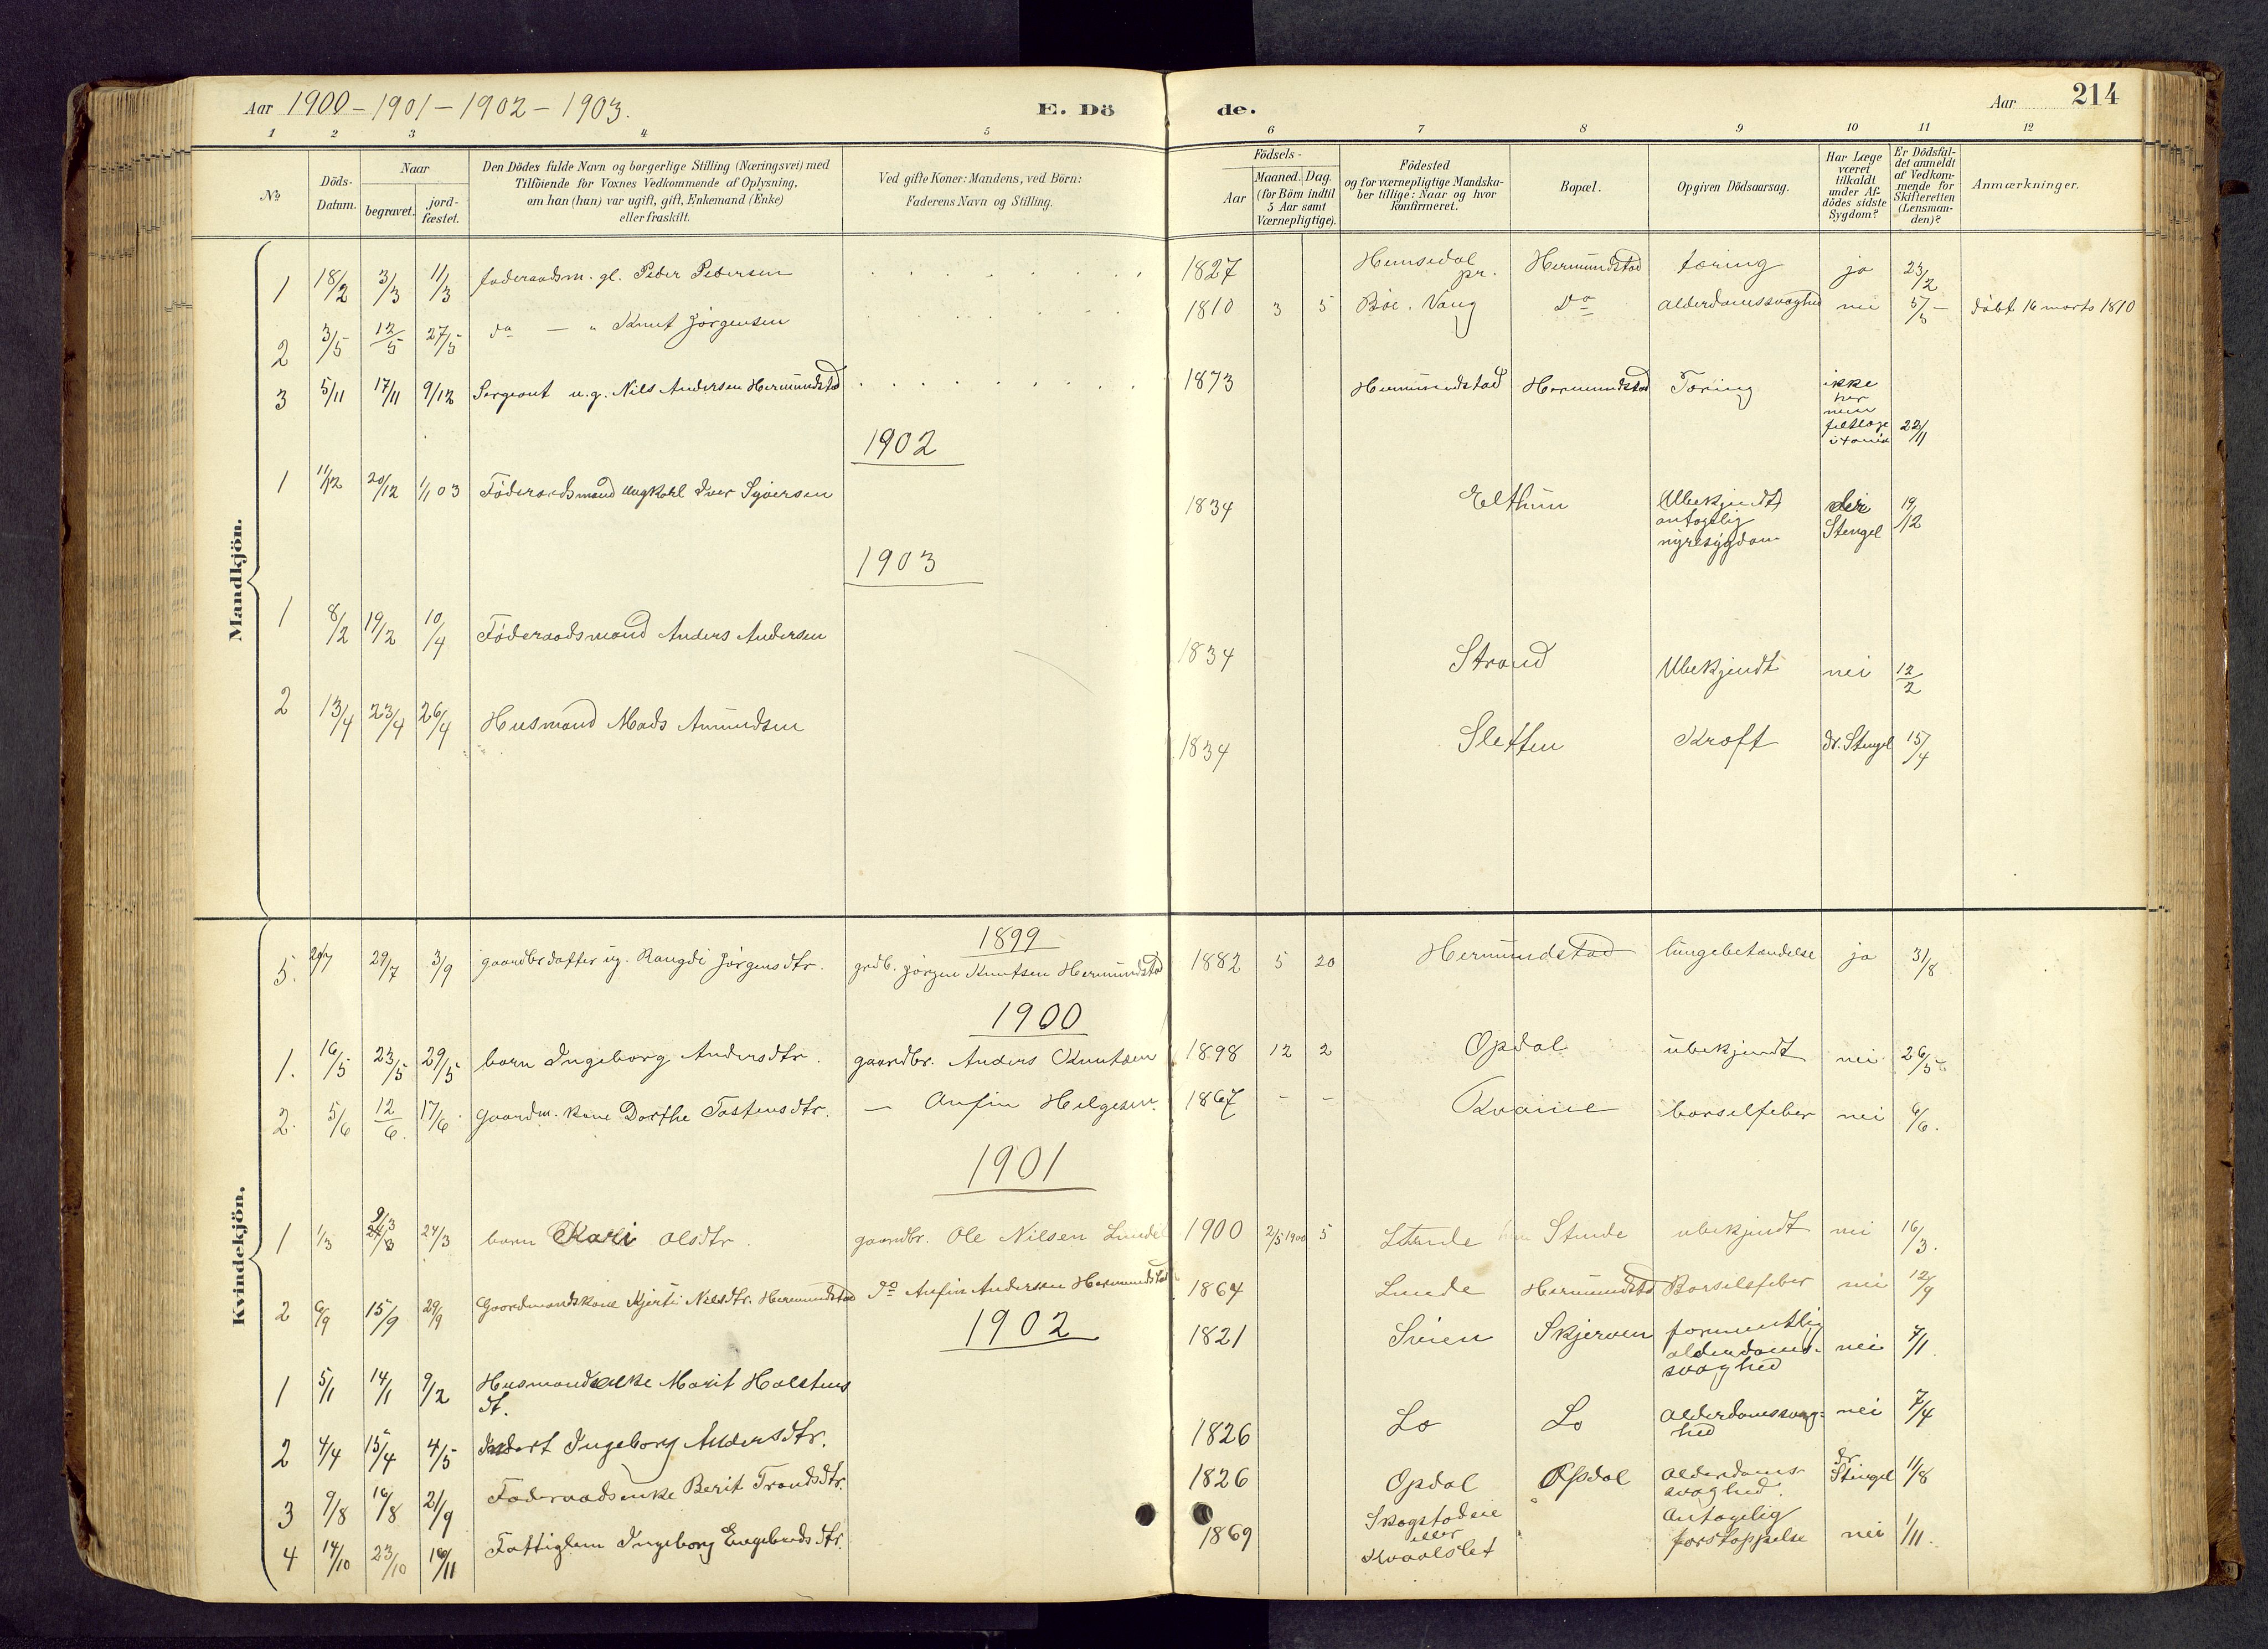 Aar 1900-1901-1902-1903.
E. Dö
de.
Aar 214
1 2 3 4 5 6 7 8 9 10 11 12
No
Döds-
Datum.
Naar
begravet.
jord-
fæstet.
Den Dödes fulde Navn og borgerlige Stilling (Næringsvei) med
Tilföiende for Voxnes Vedkommende af Oplysning,
om han (hun) var ugift, gift, Enkemand (Enke)
eller fraskilt.
Ved gifte Koner: Mandens, ved Börn:
Faderens Navn og Stilling.
Födsels-
Aar
Maaned. Dag.
(for Börn indtil
5 Aar samt
Værnepligtige).
Födested
og for værnepligtige Mandska-
ber tillige: Naar og hvor
konfirmeret.
Bopæl.
Opgiven Dödsaarsag.
Har Læge
været
tilkaldt
under Af-
dödes sidste
Sygdom?
Er Dödsfal-
det anmeldt
af Vedkom-
mende for
Skifteretten
(Lensman-
den)?
Anmærkninger.
Mandkjön.
1 18/2 3/3 11/3 föderaadsm. gl. Peder Pedersen 1827 Hemsedal pr. Hermundstad tæring ja 23/2
2 3/5 12/5 27/5 do — " Knut Jörgensen 1810 3 5 Böe. Vang Do alderdomssvaghed nei 5/5 döbt 16 marts 1810
3 5/11 17/11 9/12 Sergeant u.g. Nils Andersen Hermundstad 1873 Hermundstad Hermundstad Tæring ikke
her
men
22/11
1902
1 11/12 20/12 1/1 03 Föderaadsmand Ungkarl Iver Syversen 1834 Elthun Ubekjendt
antagelig
nyresygdom
Stengel
19/12
1903
1 8/2 19/2 10/4 Föderaadsmand Anders Andersen 1834 Strand Ubekjendt nei 12/2
2 13/4 23/4 26/4 Husmand Mads Amundsen 1834 Sletten Kræft dr. Stengel 15/4
Kvindekjön.
1899
5. 29/7 3/9 gaardbrdatter ug. Rangdi Jörgensdtr. grdb. Jörgen Knutsen Hermundstad 1882 5 20 Hermundstad lungebetændelse ja 31/8
1900
1. 16/5 23/5 29/5 barn Ingeborg Andersdtr. gaardbr. Anders Knutsen 1898 12 2 Opdal ubekjendt nei 26/5
2. 5/6 12/6. 17/6. Gaardm. kone Dorthe Tostensdtr. — Anfin Helgesen. 1867 - - Kvame barselfeber nei 6/6.
1901
1 1/3 9/3 24/3 barn Kari Olsdtr. gaardbr. Ole Nilsen 1900 2/5 1900 5 Stende ubekjendt nei 16/3.
2 6/9 15/9 29/9 Gaardmandskone Kjersti Nilsdtr. Hermundstad do Anfin Andersen Hermundstad 1864 Lunde Hermundstad Barselsfeber nei 12/9
1902
1 5/1 14/1 9/2 Husmandsenke Marit Halstens
dt.
1821 Svien Skjerven formentlig
alderdoms-
svaghed
nei 7/1
2 4/4 15/4 4/5 Ingeborg Andersdtr. 1826 Lo Lo Alderdomssvag-
hed
nei 7/4
3 9/8 16/8 21/9 Föderaadsenke Berit Trondsdtr. 1826 Opdal Opdal Alderdoms-
svaghed.
dr.
Stengel
11/8
4 14/10 23/10 16/11 Fattiglem Ingeborg Engebredsdtr. 1869 Skogstadeie
eller
Kvaalslet
Antagelig
forstoppelse
nei 1/11.